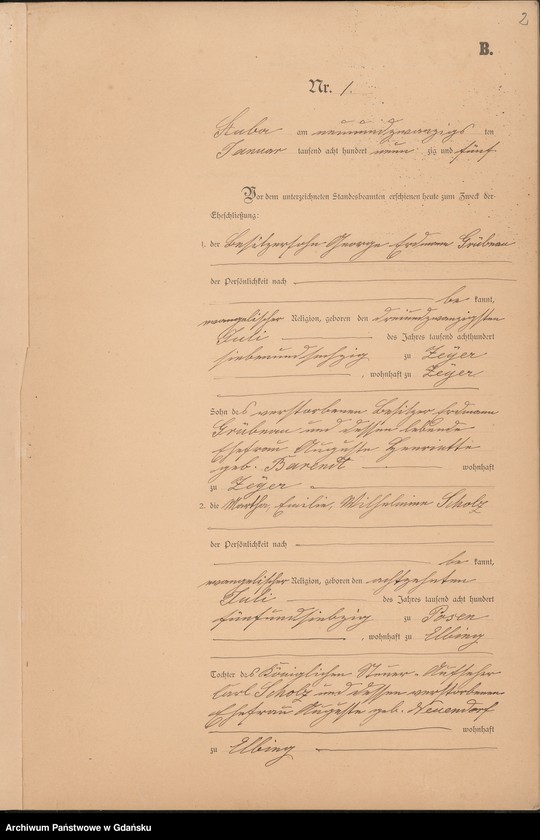 2
B.
Nr. 1.
Stuba am neunundzwanzigs ten
Januar tausend acht hundert neun zig und fünf
Vor dem unterzeichneten Standesbeamten erschienen heute zum Zweck der
Eheschließung:
1. der Besitzersohn George Erdmann Grübnau
der Persönlichkeit nach
be kannt,
evangelischer Religion, geboren den dreiundzwanzigsten
Juli des Jahres tausend achthundert
siebenundsechzig zu Zeyer
, wohnhaft zu Zeyer
Sohn des verstorbenen Besitzer Erdmann
Grübnau und dessen lebende
Ehefrau Auguste Henriette
geb. Barendt wohnhaft
zu Zeyer
2. die Martha, Emilie, Wilhelmine Scholz
der Persönlichkeit nach
be kannt,
evangelischer Religion, geboren den achtzehnten
Juli des Jahres tausend acht hundert
fünfundsiebzig zu Posen
, wohnhaft zu Elbing
Tochter des Königlichen Steuer-Aufseher
Carl Scholz und dessen verstorbenen
Ehefrau Auguste geb. Neuendorf
wohnhaft
zu Elbing
Archiwum Państwowe w Gdańsku